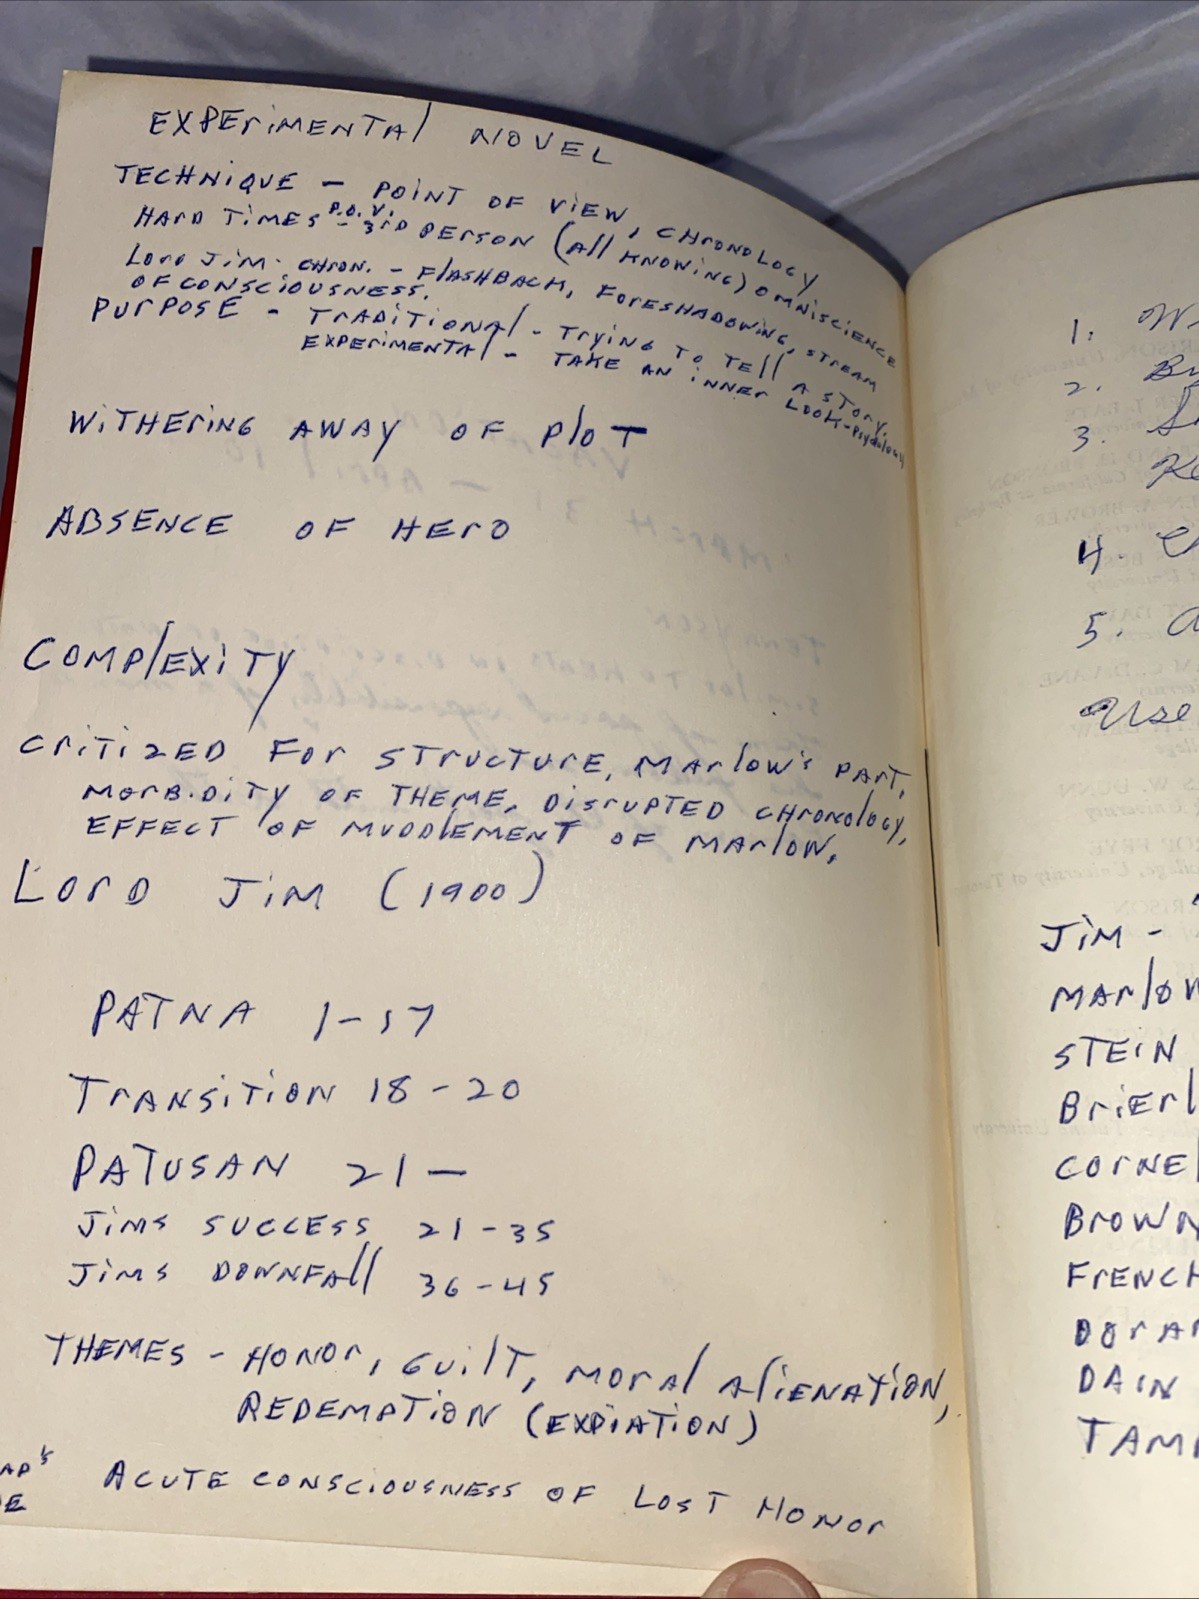 EXPERIMENTAL NOVEL
TECHNIQUE - POINT OF VIEW, CHRONOLOGY
P.O.V.
HARD TIMES - 3RD PERSON (All KNOWING) OMNISCIENCE
LORD JIM - CHRON. - FLASHBACK, FORESHADOWING, STREAM
OF CONSCIOUSNESS.
PURPOSE - TRADITIONAL - TRYING TO TELL A STORY.
EXPERIMENTAL - TAKE AN INNER LOOK - Psychology
WITHERING AWAY OF PLOT
ABSENCE OF HERO
COMPLEXITY
CRITIZED FOR STRUCTURE, MARLOW'S PART,
MORBIDITY OF THEME, DISRUPTED CHRONOLOGY,
EFFECT OF MUDDLEMENT OF MARLOW.
LORD JIM (1900)
PATNA 1-17
TRANSITION 18-20
PATUSAN 21 -
JIMS SUCCESS 21-35
JIMS DOWNFALL 36-45
THEMES - HONOR, GUILT, MORAL ALIENATION,
REDEMPTION (EXPIATION)
ACUTE CONSCIOUSNESS OF LOST HONOR
1.
2.
3.
4.
5.
Use
JIM -
MARLOW
STEIN
BRIERL
CORNEL
BROWN
FRENCH
DORAM
DAIN
TAM